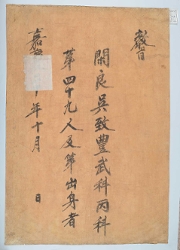 敎旨
閑良吳致豐武科丙科
第四十九人及第出身者
嘉 年十月 日